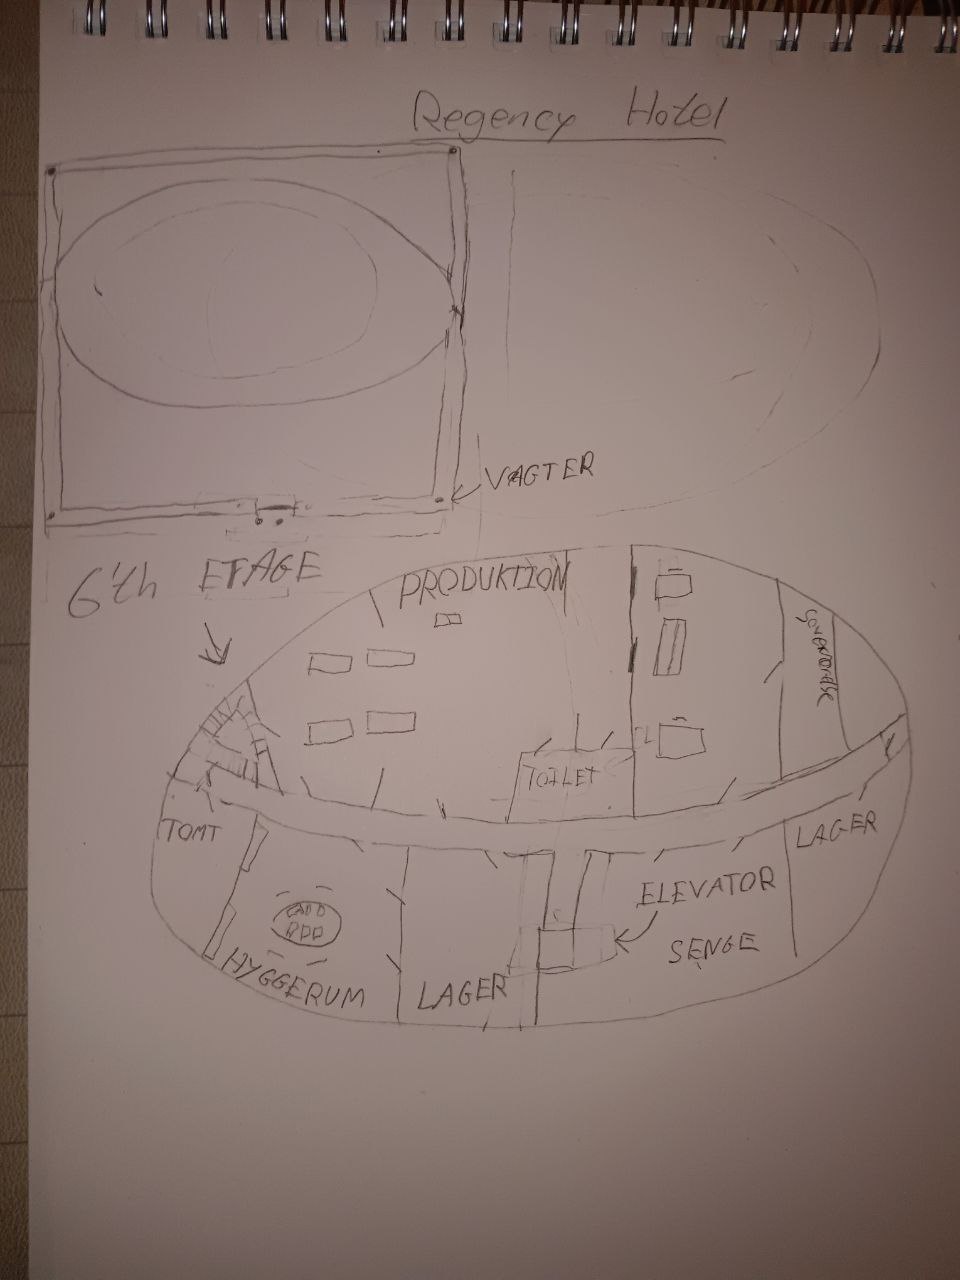 Regency Hotel
VAGTER
6'th ETAGE
PRODUKTION
TOILET
TOMT
LAGER
ELEVATOR
SENGE
HYGGERUM
LAGER